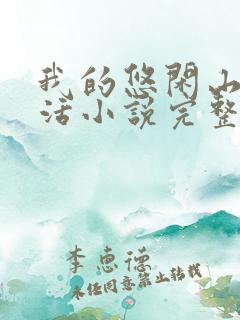 我的悠閑山
活小說完整
李惠德
未任同意禁止转载